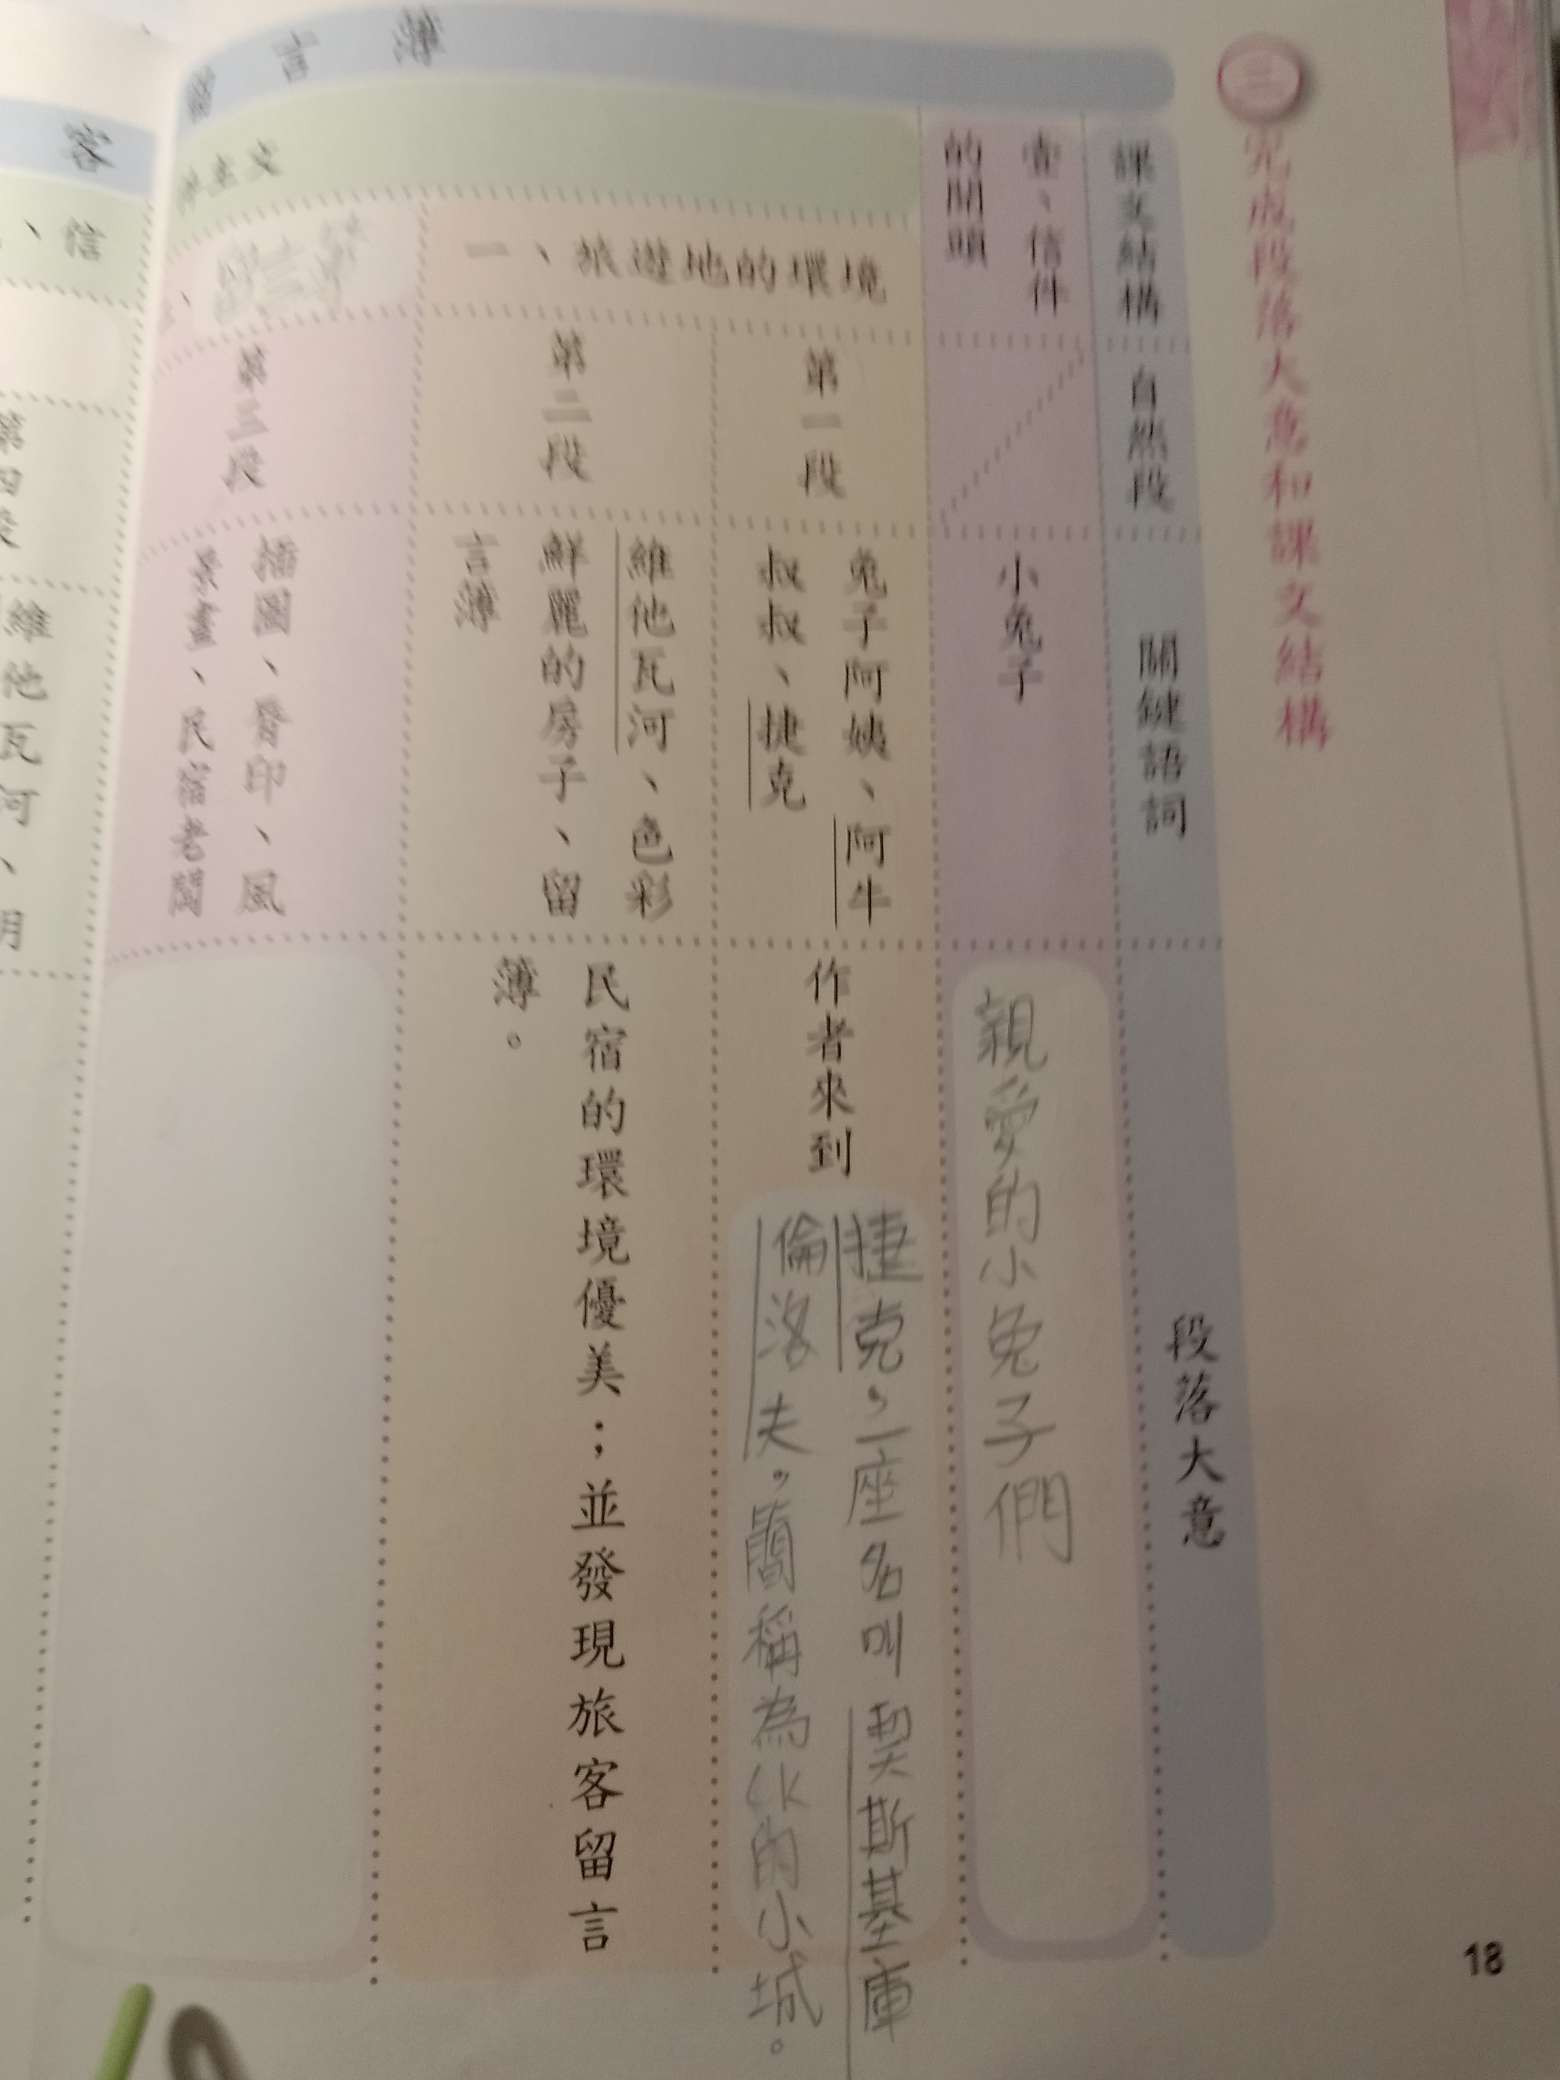 三 完成段落大意和課文結構
課文結構
自然段
關鍵語詞
段落大意
壹、信件
的開頭
小兔子
親愛的小兔子們
一、旅遊地的環境
第一段
兔子阿姨、阿牛
叔叔、捷克
作者來到
捷克,一座名叫契斯基庫
倫洛夫,簡稱為CK的小城。
第二段
維他瓦河、色彩
鮮麗的房子、留
言薄
民宿的環境優美；並發現旅客留言
薄。
第三段
插圖、唇印、風
景畫、民宿老闆
留言薄
客
、信
維他瓦河、明
18